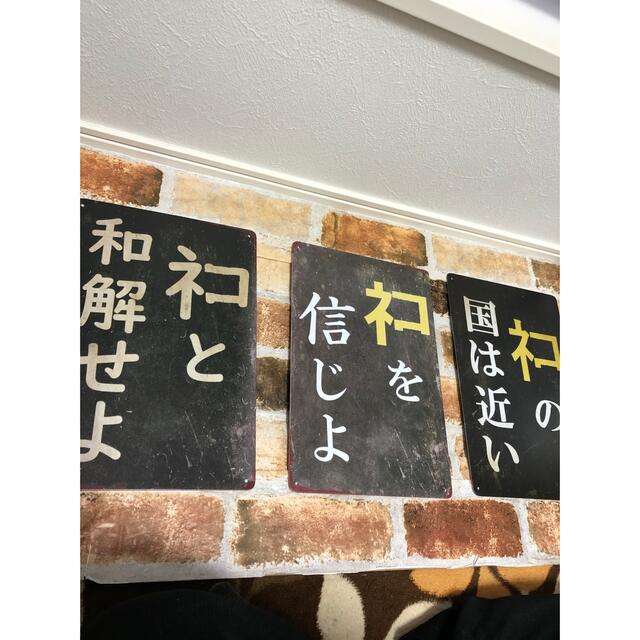 ネコと
和解せよ
ネコを
信じよ
ネコの
国は近い